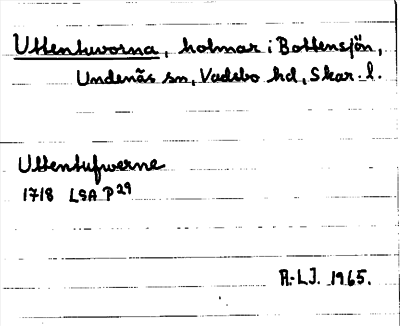 Uttentuvorna, holmar i Bottensjön,
Undenäs sn, Vadsbo hd, Skar. l.
Uttentufwerne
1718 LSA P 29
R.-L.J. 1965.